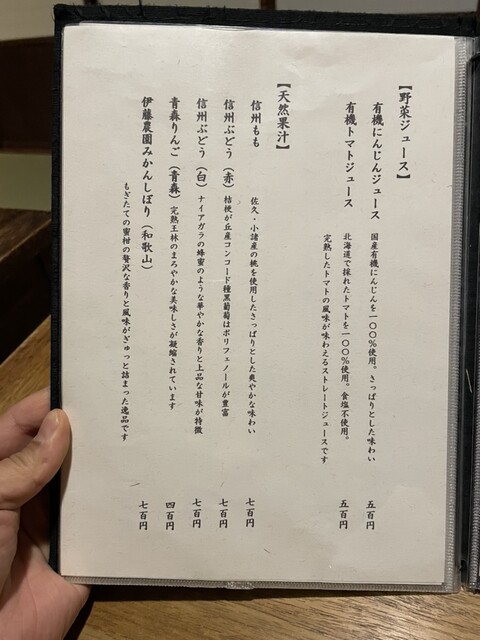 【野菜ジュース】
有機にんじんジュース 国産有機にんじんを一〇〇％使用。さっぱりとした味わい 五百円
有機トマトジュース 北海道で採れたトマトを一〇〇％使用。食塩不使用。 五百円
完熟したトマトの風味が味わえるストレートジュースです
【天然果汁】
信州もも 佐久・小諸産の桃を使用したさっぱりとした爽やかな味わい 七百円
信州ぶどう（赤） 桔梗が丘産コンコード種黒葡萄はポリフェノールが豊富 七百円
信州ぶどう（白） ナイアガラの蜂蜜のような華やかな香りと上品な甘味が特徴 七百円
青森りんご（青森） 完熟王林のまろやかな美味しさが凝縮されています 四百円
伊藤農園みかんしぼり（和歌山） 七百円
もぎたての蜜柑の贅沢な香りと風味がぎゅっと詰まった逸品です